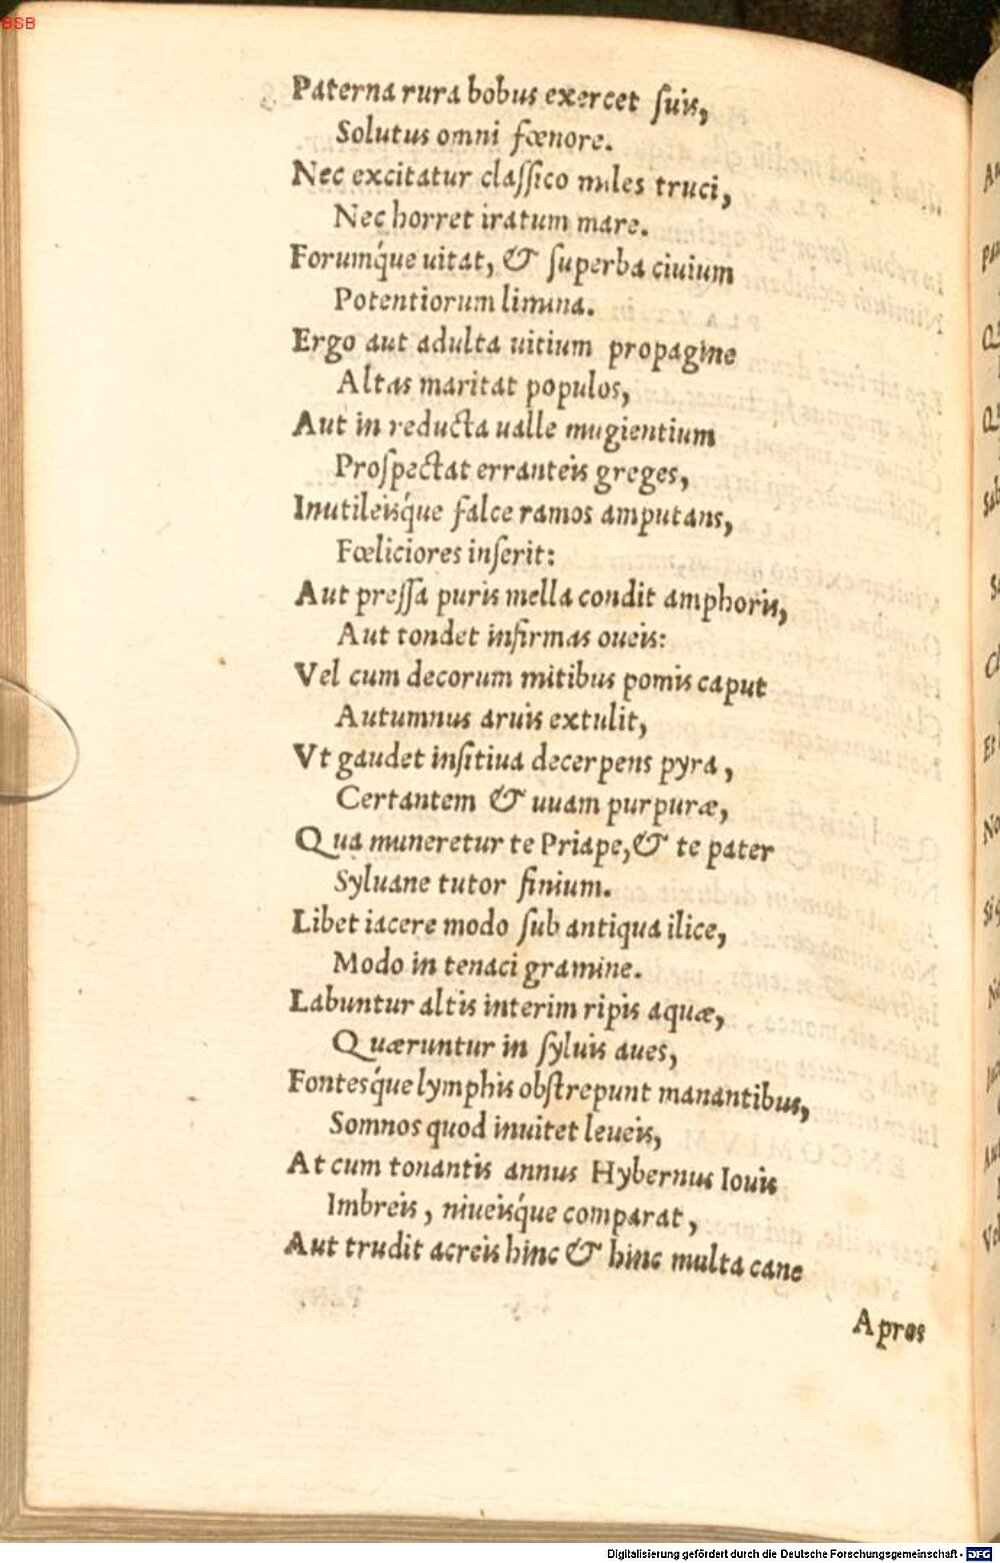 BSB
Paterna rura bobus exercet ſuis,
Solutus omni fœnore.
Nec excitatur claſſico miles truci,
Nec horret iratum mare.
Forumq́ue uitat, & ſuperba ciuium
Potentiorum limina.
Ergo aut adulta uitium propagine
Altas maritat populos,
Aut in reducta ualle mugientium
Proſpectat erranteis greges,
Inutileisq́ue falce ramos amputans,
Fœliciores inſerit:
Aut preſſa puris mella condit amphoris,
Aut tondet infirmas oueis:
Vel cum decorum mitibus pomis caput
Autumnus aruis extulit,
Vt gaudet inſitiua decerpens pyra,
Certantem & uuam purpuræ,
Qua muneretur te Priape, & te pater
Syluane tutor finium.
Libet iacere modo ſub antiqua ilice,
Modo in tenaci gramine.
Labuntur altis interim ripis aquæ,
Quæruntur in ſyluis aues,
Fontesq́ue lymphis obſtrepunt manantibus,
Somnos quod inuitet leueis,
At cum tonantis annus Hybernus Iouis
Imbreis, niueisq́ue comparat,
Aut trudit acreis hinc & hinc multa cane
Apros
Digitalisierung gefördert durch die Deutsche Forschungsgemeinschaft - DFG